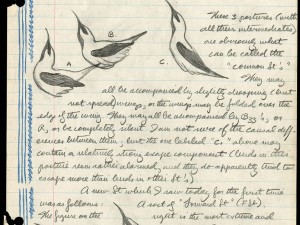 A
B
C.
These 3 postures (with
all their intermediates)
are obviously what
can be called the
"common St's".
They may
all be accompanied by slightly drooping (but
not spreading, or the wings may be folded over the
edge of the wing. They may all be accompanied by B33's, or
R, or be completely silent. I am not sure of the causal diff-
erences between them; but the one labelled "C." above may
contain a relatively strong escape component (birds in this
posture seem rather alarmed, and they do apparently tend to
escape more than birds in other St's).
A new St which I saw today for the first time
was as follows: A sort of "Forward St" (FSt).
The figure on the right is the most extreme and